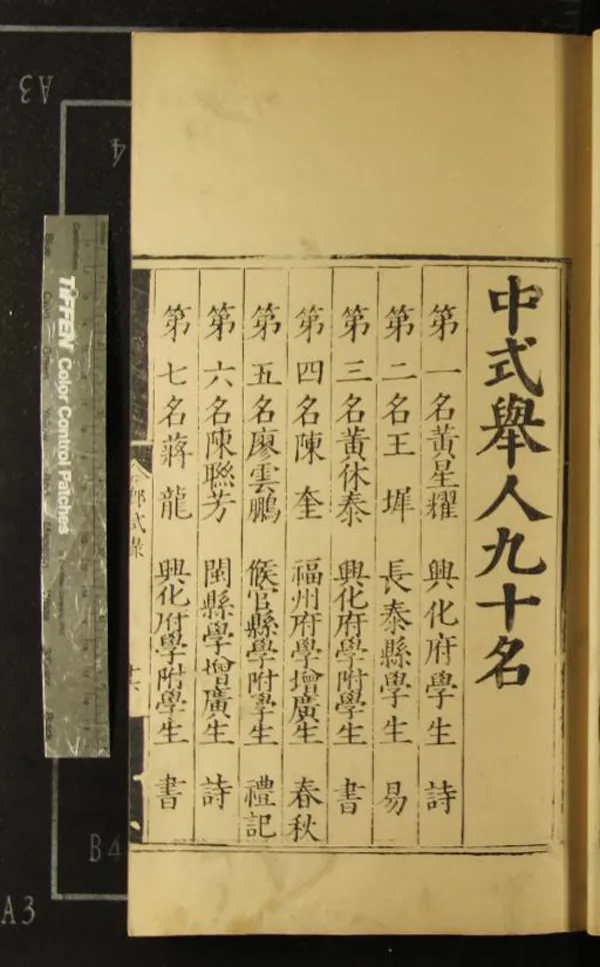 中式舉人九十名
第一名黃星耀 興化府學生 詩
第二名王墀 長泰縣學生 易
第三名黃休泰 興化府學附學生 書
第四名陳奎 福州府學增廣生 春秋
第五名廖雲鵬 候官縣學附學生 禮記
第六名陳聯芳 閩縣學增廣生 詩
第七名蔣龍 興化府學附學生 書
鄉式錄
十六
TIFFEN Color Control Patches
A3
4
B4
A3